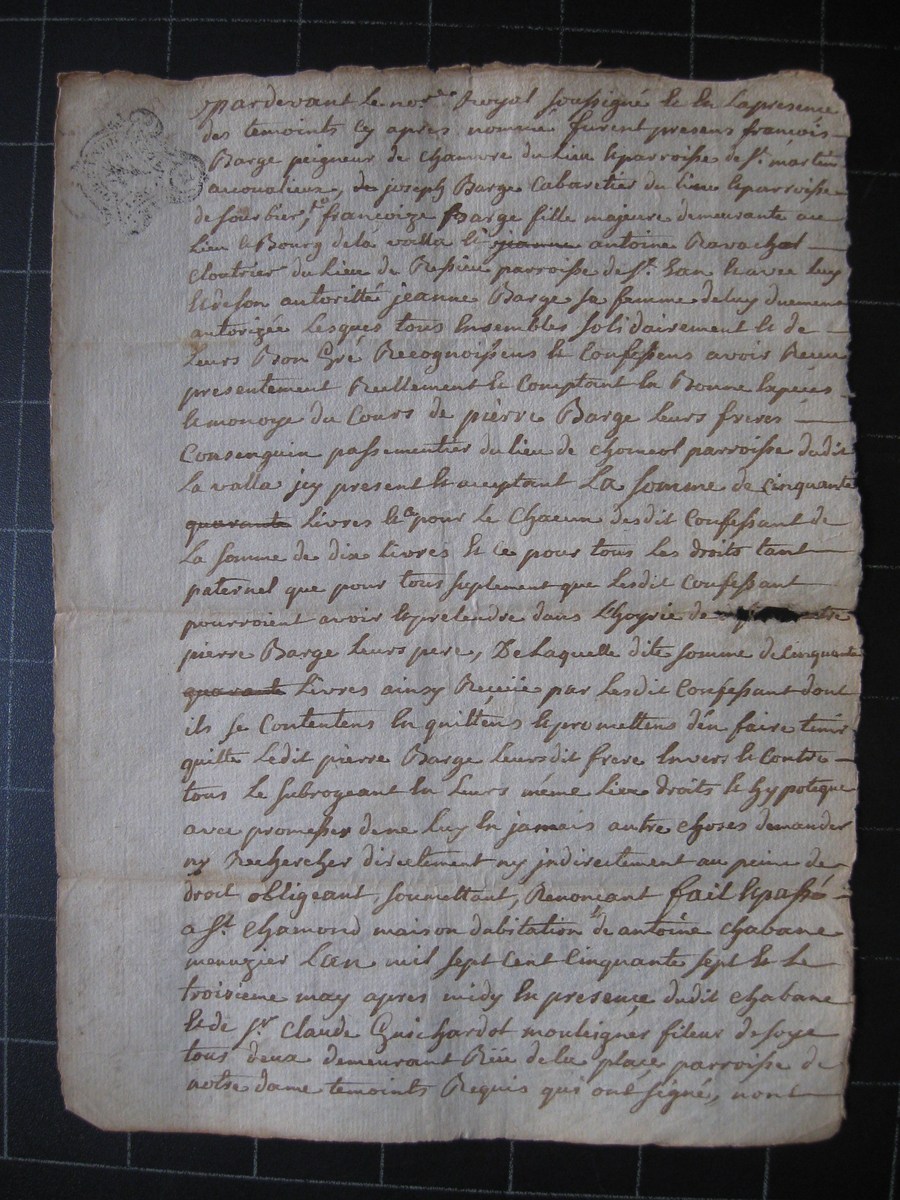 Pardevant le nore Royal soussigné et en la presence
des temoints cy apres nommé furent presens francois
Barge peigneur de chamvre du lieu et parroisse de St martin
acoualieux, de joseph Barge Cabaretier du lieu et parroisse
de sourbier, francoize Barge fille majeure demeurante au
lieu et Bourg de la valla et jeanne antoine Ravachol
cloutrier du lieu de Ressieu parroisse de St Ean et avec luy
et de son autoritté jeanne Barge sa femme de luy duement
autorizée lesques tous Ensembles solidairement et de
leurs Bon Gré Recognoissens et Confessens avoir Receu
presentement Reellement et Comptant en Bonne Especes
et monoye du Cours de pièrre Barge leurs freres
Consenguin passementier du lieu de chomeol parroisse dudit
la valla jcy present et acceptant La somme de cinquante
quarante livres et ce pour le Chacun desdit Confessant de
la somme de dix livres Et ce pour tous les droits tant
paternel que pour tous suplement que lesdit Confessant
pourroient avoir et pretendre dans l'hoyrie de
pierre Barge leurs pere, De laquelle dite somme de cinquante
quarante livres ainsy Receüe par lesdit Confessant dont
ils se Contentens En quittens et promettens d'en faire tenir
quitte ledit pièrre Barge leursdit frere Envers et Contre
tous le subrogeant En leurs même lieu droits et hypoteque
avec promesses de ne luy En jamais autre choses demander
ny Rechercher directement ny jndirectement au peine de
droit obligeant, soumettant, Renoncant fait et passé
a St chamond maison d'abitation de antoine chabane
menuzier L'an mil sept cent Cinquante sept et le
troisieme may apres midy En presence dudit chabane
et de Sr Claude Guichardot mouleigner fileur de soye
tous deux demeurant Rüe de la place parroisse de
notre dame temoints Requis qui ont signé, nont